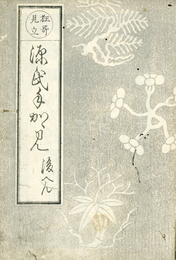 狂哥
見立
源氏手加見
後へん